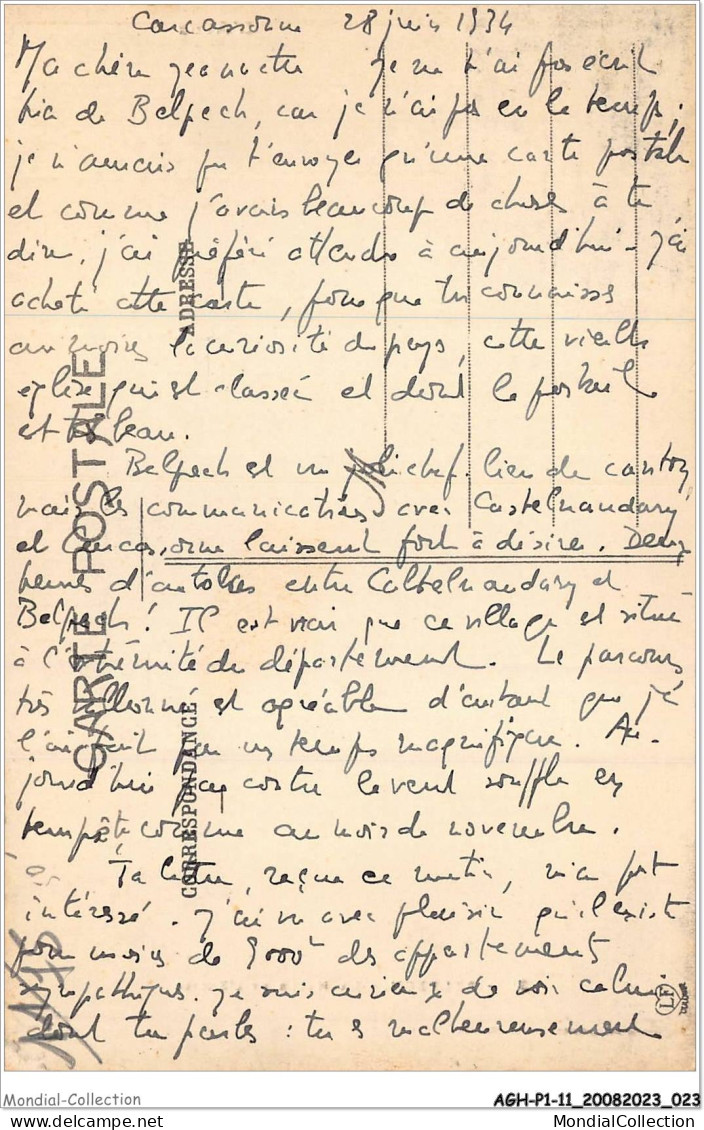 Carcassonne 28 juin 1934
Ma chère Jeannette Je ne t'ai pas écrit
hier de Belpech, car je n'ai pas eu le temps,
je n'aurais pu t'envoyer qu'une carte postale
et comme j'avais beaucoup de choses à te
dire, j'ai préféré attendre à aujourd'hui - J'ai
acheté cette carte, pour que tu connaisses
au moins la curiosité du pays, cette vieille
église qui est classée et dont le portail
est très beau.
Belpech est un joli chef-lieu de canton
mais les communications avec Castelnaudary
et Carcassonne laissent fort à désirer. Deux
heures d'autobus entre Castelnaudary et
Belpech! Il est vrai que ce village est situé
à l'extrémité du département. Le parcours
très vallonné est agréable d'autant que je
l'ai fait par un temps magnifique. Au-
jourd'hui par contre le vent souffle en
tempête comme au mois de novembre.
Ta lettre, reçue ce matin, m'a fort
intéressé. J'ai vu avec plaisir qu'il existe
pour moins de 9000f des appartements
sympathiques. Je suis curieux de voir celui
dont tu parles : tu es malheureusement
CARTE POSTALE
CORRESPONDANCE
ADRESSE
LF
Mondial-Collection
AGH-P1-11_20082023_023
MondialCollection